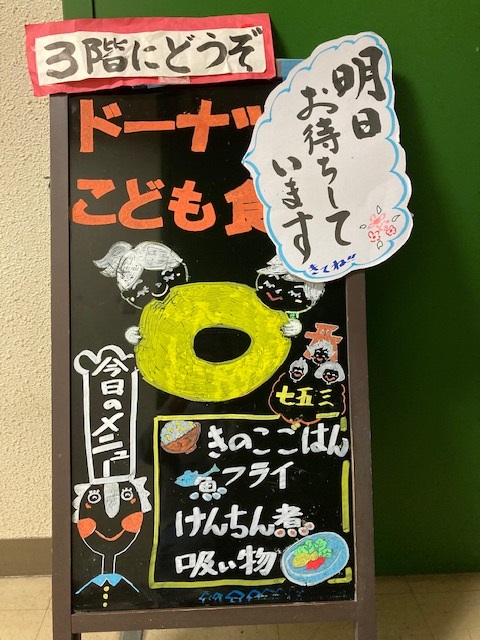 3階にどうぞ
ドーナッ
こども食
明日
お待ちして
います
きてね
七五三
今日のメニュー
きのこごはん
魚フライ
けんちん煮
吸い物